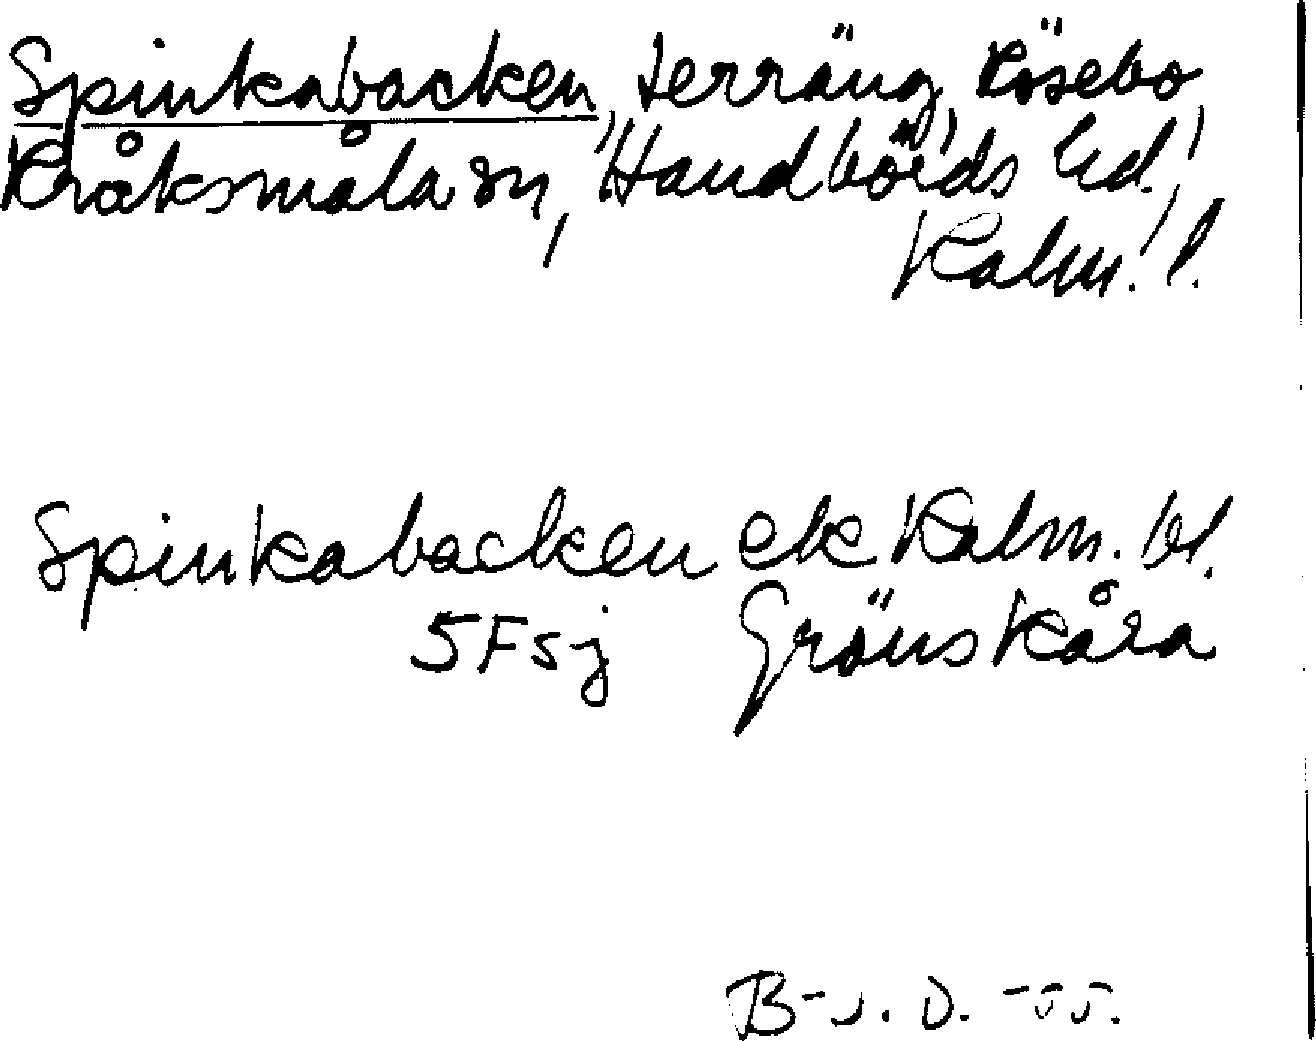 Spinkabacken, terräng, Rösebo,
Kråksmåla sn, Handbörds hd,
Kalm. l.
Spinkabacken ek Kalm. bl.
5F5j Grönskåra
B-J. D. -55.